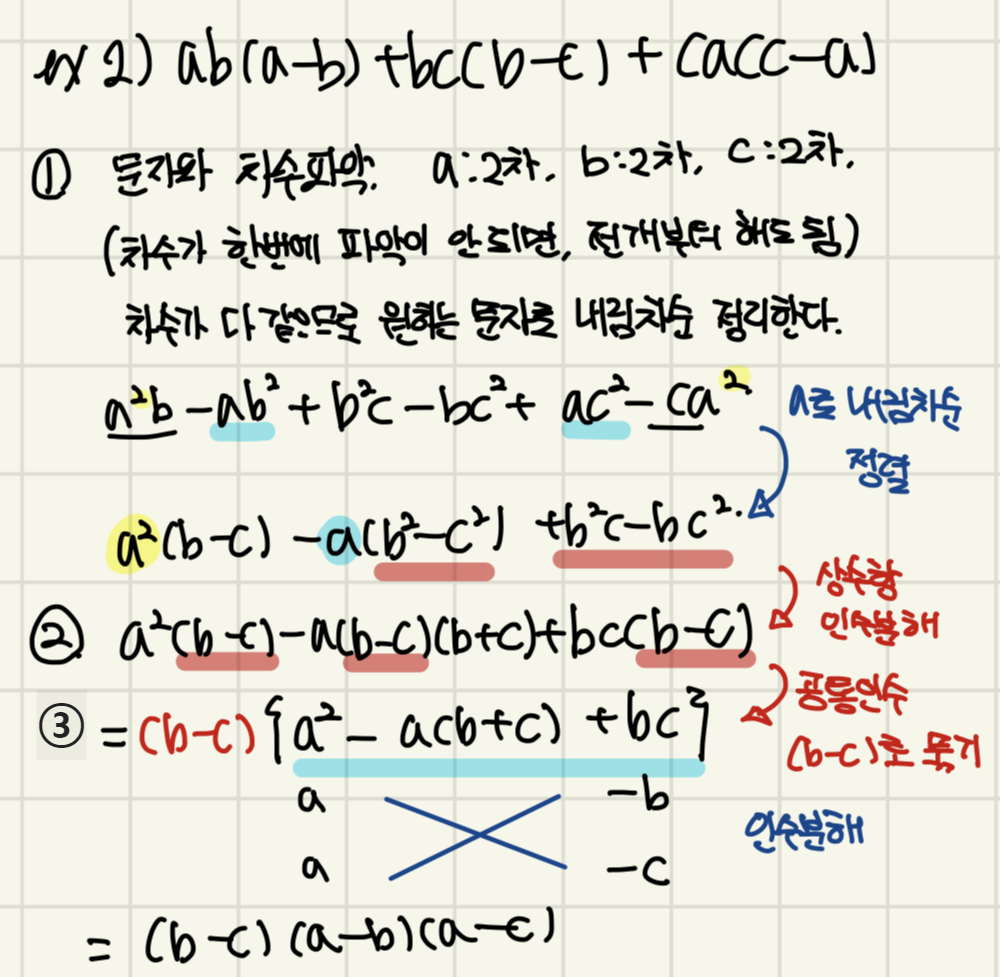 ex 2) ab(a-b)+bc(b-c)+ca(c-a)
① 문자와 차수파악. a:2차, b:2차, c:2차.
(차수가 한번에 파악이 안되면, 전개부터 해도 됨)
차수가 다 같으므로 원하는 문자로 내림차순 정리한다.
a²b - ab² + b²c - bc² + ac² - ca²
a로 내림차순
정렬
a²(b-c) - a(b²-c²) + b²c - bc².
상수항
인수분해
② a²(b-c) - a(b-c)(b+c) + bc(b-c)
공통인수
(b-c)로 묶기
③ = (b-c){a² - a(b+c) + bc}
a -b
인수분해
a -c
= (b-c)(a-b)(a-c)